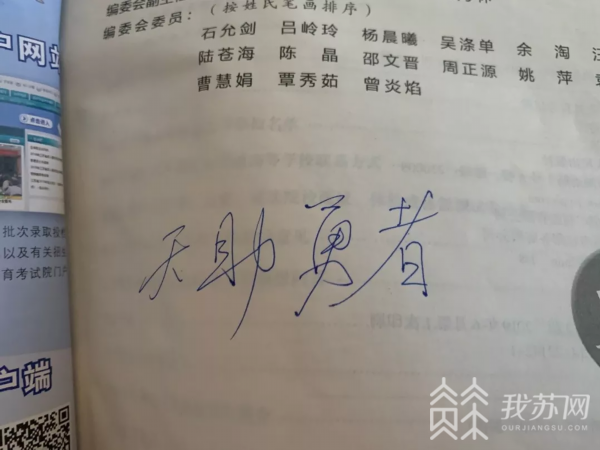 (按姓氏笔画排序)
编委会委员：
石允剑 吕岭玲 杨晨曦 吴涤单 余 淘
陆苍海 陈 晶 邵文晋 周正源 姚 萍
曹慧娟 覃秀茹 曾炎焰
户网站
批次录取
以及有关
育考试院门户
户端
天助勇者
我苏网
OURJIANGSU.COM